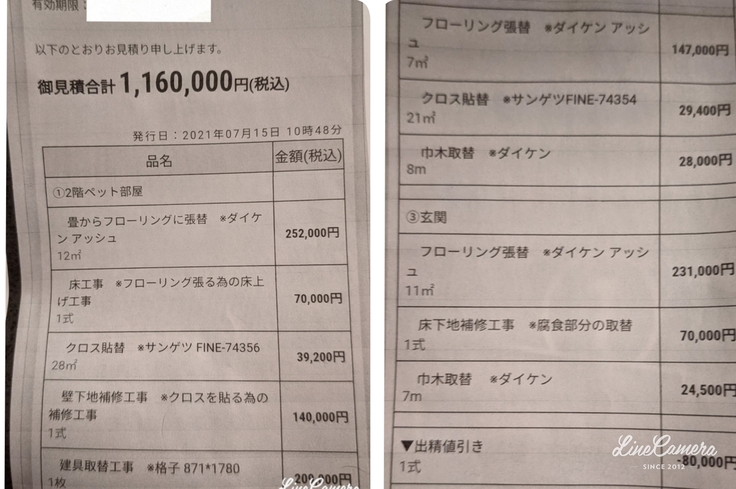 有効期限：
以下のとおりお見積り申し上げます。
御見積合計 1,160,000円(税込)
発行日：2021年07月15日 10時48分
品名 金額(税込)
①2階ペット部屋
畳からフローリングに張替 ※ダイケ
ン アッシュ
12㎡
252,000円
床工事 ※フローリング張る為の床上
げ工事
1式
70,000円
クロス貼替 ※サンゲツ FINE-74356
28㎡
39,200円
壁下地補修工事 ※クロスを貼る為の
補修工事
1式
140,000円
建具取替工事 ※格子 871*1780
1枚
フローリング張替 ※ダイケン アッシ
ュ
7㎡
147,000円
クロス貼替 ※サンゲツFINE-74354
21㎡
29,400円
巾木取替 ※ダイケン
8m
28,000円
③玄関
フローリング張替 ※ダイケン アッシ
ュ
11㎡
231,000円
床下地補修工事 ※腐食部分の取替
1式
70,000円
巾木取替 ※ダイケン
7m
24,500円
▼出精値引き
1式
-80,000円
LineCamera
SINCE 2012
LineCamera